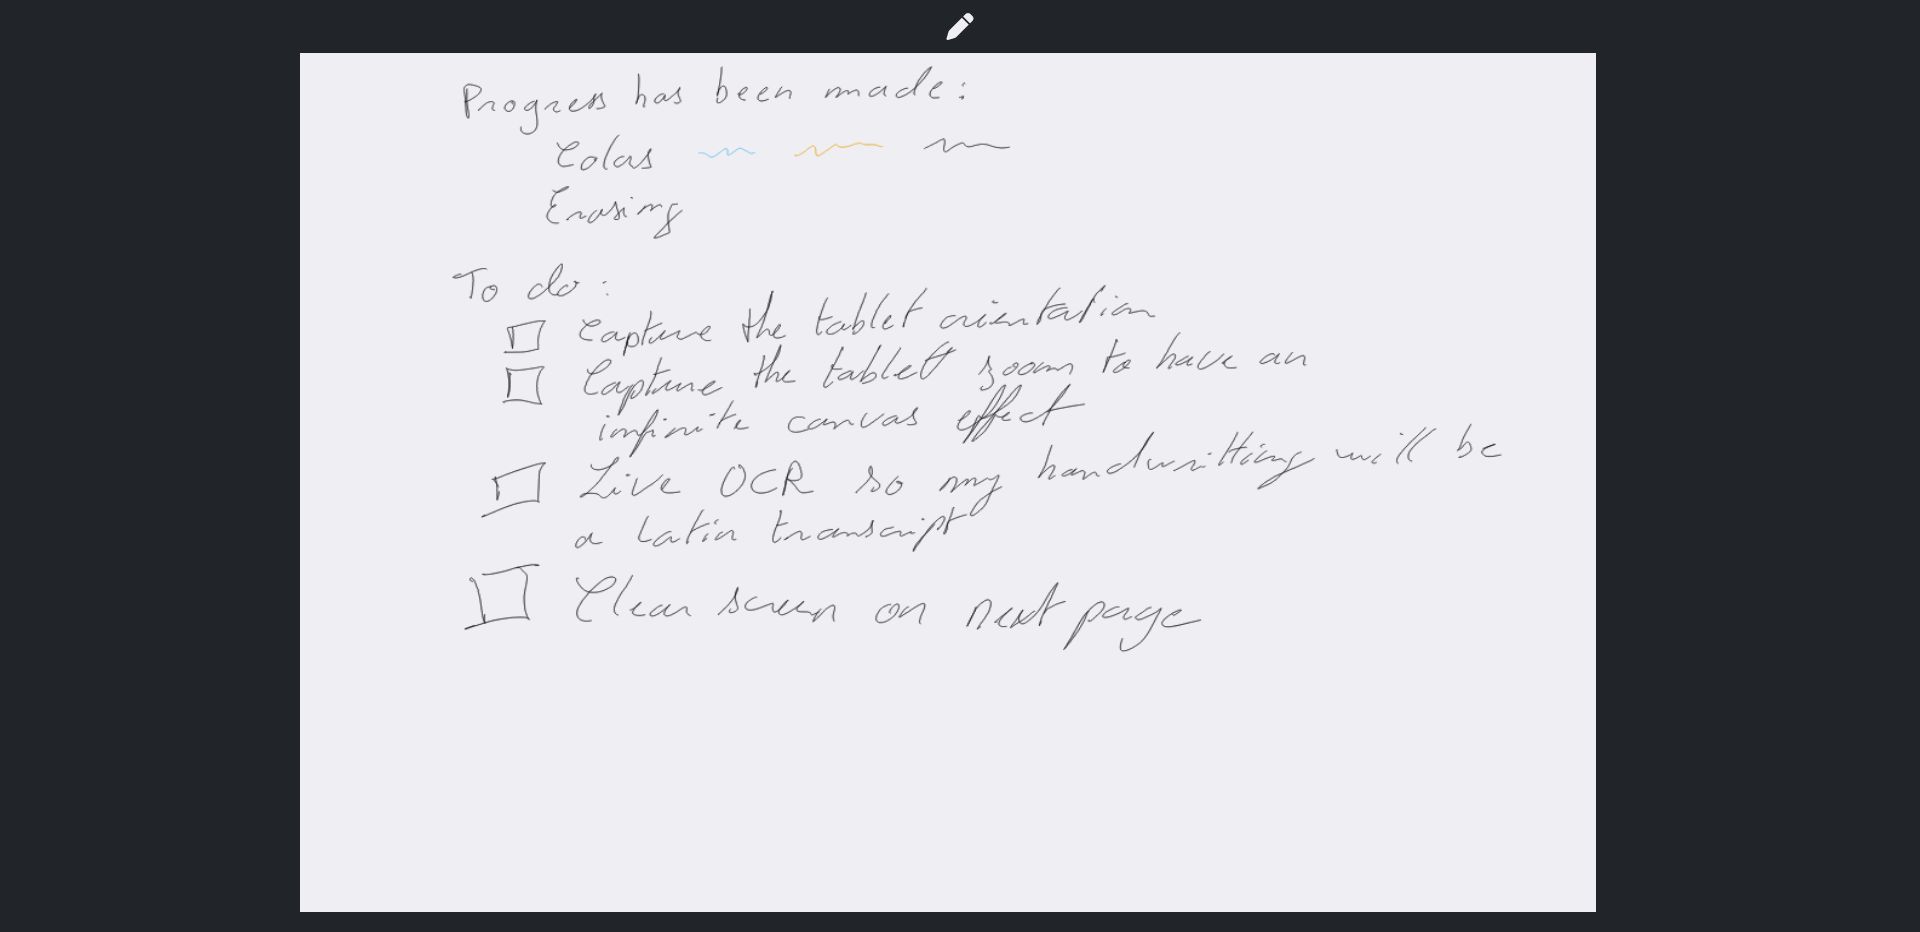 Progress has been made:
Colors
Erasing
To do:
Capture the tablet orientation
Capture the tablet zoom to have an
infinite canvas effect
Live OCR so my handwritting will be
a Latin transcript
Clear screen on next page